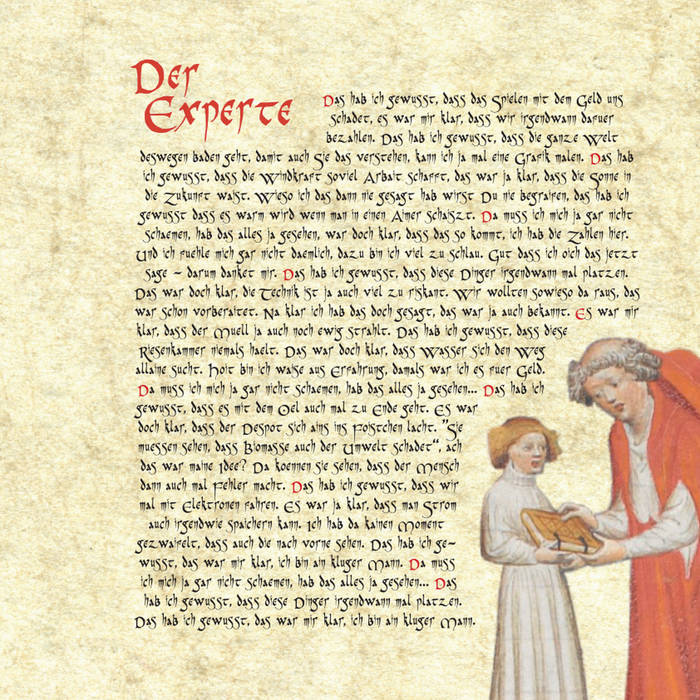 Der
Experte
Das hab ich gewusst, dass das Spielen mit dem Geld uns
schadet, es war mir klar, dass wir irgendwann dafuer
bezahlen. Das hab ich gewusst, dass die ganze Welt
deswegen baden geht, damit auch Sie das verstehen, kann ich ja mal eine Grafik malen. Das hab
ich gewusst, dass die Windkraft soviel Arbait schafft, das war ja klar, dass die Sonne in
die Zukunft waist. Wieso ich das dann nie gesagt hab wirst Du nie begraifen, das hab ich
gewusst dass es warm wird wenn man in einen Aimer schaiszt. Da muss ich mich ja gar nicht
schaemen, hab das alles ja gesehen, war doch klar, dass das so kommt, ich hab die Zahlen hier.
Und ich fuehle mich gar nicht daemlich, dazu bin ich viel zu schlau. Gut dass ich oich das jetzt
sage - darum danket mir. Das hab ich gewusst, dass diese Dinger irgendwann mal platzen.
Das war doch klar, die Technik ist ja auch viel zu riskant. Wir wollten sowieso da raus, das
war schon vorberaitet. Na klar ich hab das doch gesagt, das war ja auch bekannt. Es war mir
klar, dass der Muell ja auch noch ewig strahlt. Das hab ich gewusst, dass diese
Riesenkammer niemals haelt. Das war doch klar, dass Wasser sich den Weg
allaine sucht. Hoit bin ich waise aus Erfahrung, damals war ich es fuer Geld.
Da muss ich mich ja gar nicht schaemen, hab das alles ja gesehen... Das hab ich
gewusst, dass es mit dem Oel auch mal zu Ende geht. Es war
doch klar, dass der Despot sich ains ins Foistchen lacht. "Sie
muessen sehen, dass Biomasse auch der Umwelt schadet", ach
das war maine Idee? Da koennen sie sehen, dass der Mensch
dann auch mal Fehler macht. Das hab ich gewusst, dass wir
mal mit Elektronen fahren. Es war ja klar, dass man Strom
auch irgendwie spaichern kann. Ich hab da kainen Moment
gezwaifelt, dass auch die nach vorne sehen. Das hab ich ge-
wusst, das war mir klar, ich bin ain kluger Mann. Da muss
ich mich ja gar nicht schaemen, hab das alles ja gesehen... Das
hab ich gewusst, dass diese Dinger irgendwann mal platzen.
Das hab ich gewusst, das war mir klar, ich bin ain kluger Mann.